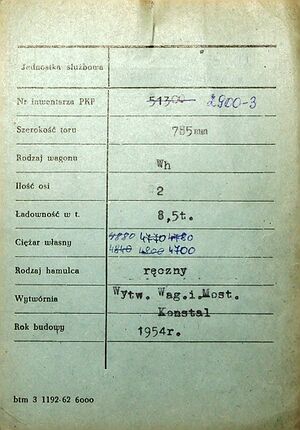 Jednostka służbowa
Nr inwentarza PKP 51300 2900-3
Szerokość toru 785mm
Rodzaj wagonu Wh
Ilość osi 2
Ładowność w t. 8,5t.
Ciężar własny 4880 4770 4780
4840 4800 4700
Rodzaj hamulca ręczny
Wytwórnia Wytw. Wag.i.Most.
Konstal
Rok budowy 1954r.
btm 3 1192-62 6000